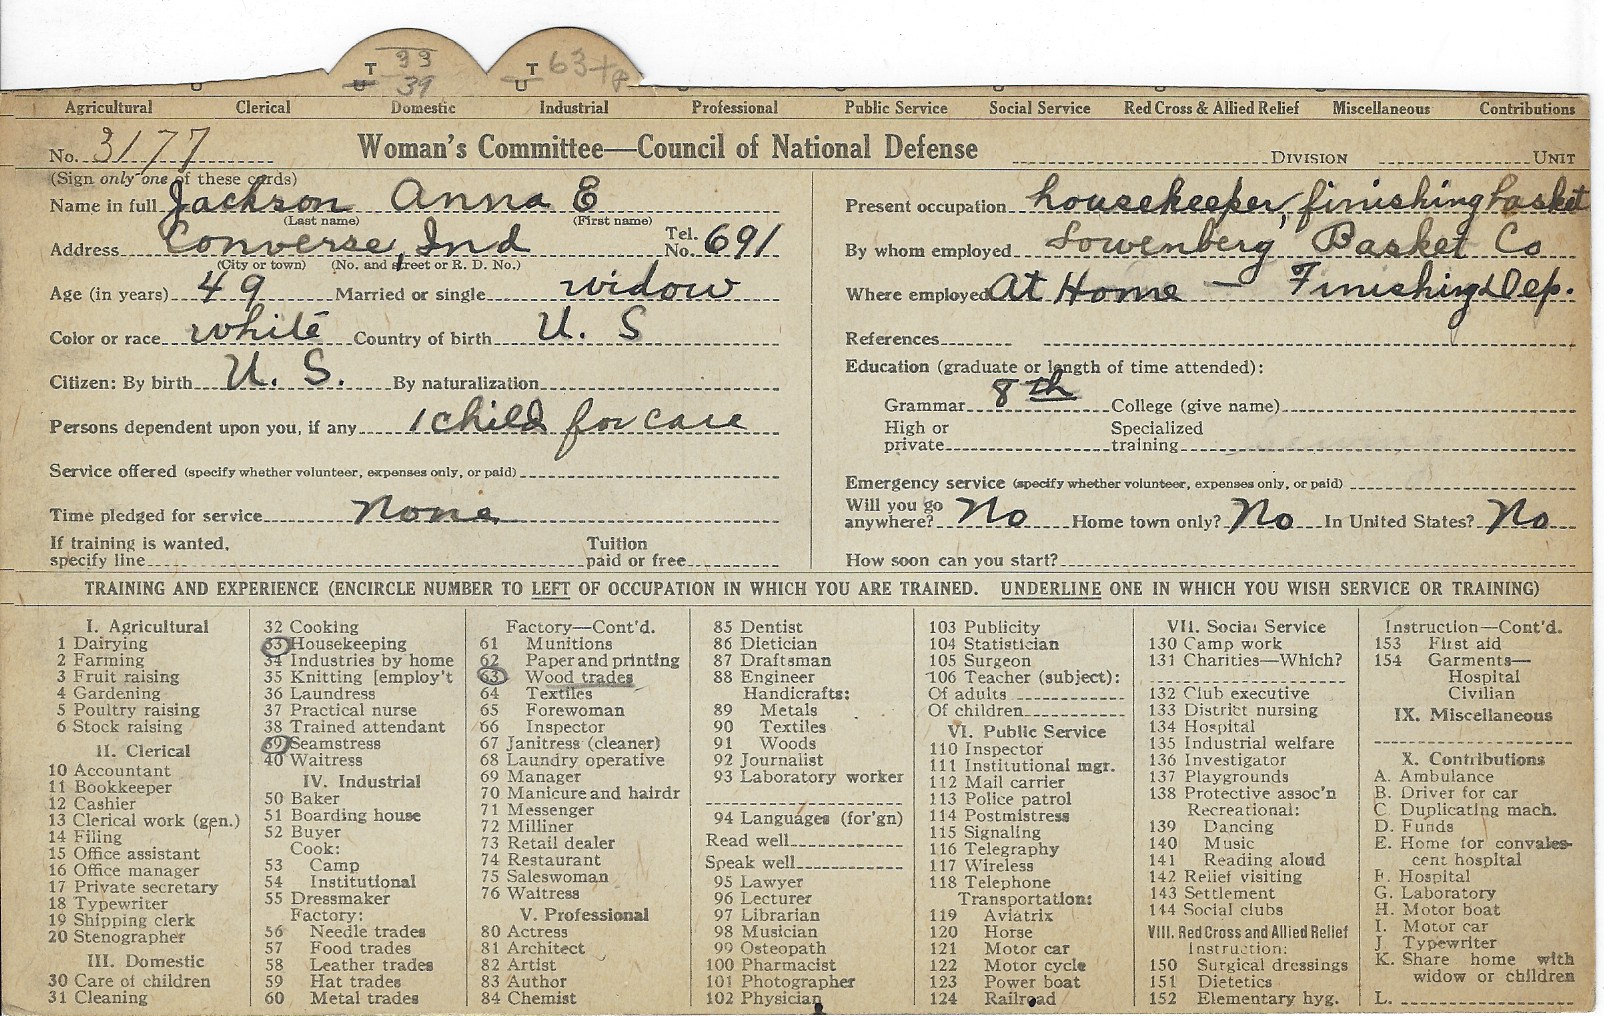 T 33 T 63 + P
U 39 U
Agricultural Clerical Domestic Industrial Professional Public Service Social Service Red Cross & Allied Relief Miscellaneous Contributions
No. 3177 Woman's Committee—Council of National Defense DIVISION UNIT
(Sign only one of these cards)
Name in full Jackson Anna E
(Last name) (First name)
Address Converse, Ind Tel. No. 691
(City or town) (No. and street or R. D. No.)
Age (in years) 49 Married or single widow
Color or race white Country of birth U. S
Citizen: By birth U. S. By naturalization
Persons dependent upon you, if any 1 child for care
Service offered (specify whether volunteer, expenses only, or paid)
Time pledged for service None
If training is wanted, specify line Tuition paid or free
Present occupation housekeeper, finishing basket
By whom employed Lowenberg Basket Co
Where employed At Home — Finishing Dep.
References
Education (graduate or length of time attended):
Grammar 8th College (give name)
High or private Specialized training
Emergency service (specify whether volunteer, expenses only, or paid)
Will you go anywhere? No Home town only? No In United States? No
How soon can you start?
TRAINING AND EXPERIENCE (ENCIRCLE NUMBER TO LEFT OF OCCUPATION IN WHICH YOU ARE TRAINED. UNDERLINE ONE IN WHICH YOU WISH SERVICE OR TRAINING)
I. Agricultural
1 Dairying
2 Farming
3 Fruit raising
4 Gardening
5 Poultry raising
6 Stock raising
II. Clerical
10 Accountant
11 Bookkeeper
12 Cashier
13 Clerical work (gen.)
14 Filing
15 Office assistant
16 Office manager
17 Private secretary
18 Typewriter
19 Shipping clerk
20 Stenographer
III. Domestic
30 Care of children
31 Cleaning
32 Cooking
33 Housekeeping
34 Industries by home
35 Knitting [employ't
36 Laundress
37 Practical nurse
38 Trained attendant
39 Seamstress
40 Waitress
IV. Industrial
50 Baker
51 Boarding house
52 Buyer
Cook:
53 Camp
54 Institutional
55 Dressmaker
Factory:
56 Needle trades
57 Food trades
58 Leather trades
59 Hat trades
60 Metal trades
Factory—Cont'd.
61 Munitions
62 Paper and printing
63 Wood trades
64 Textiles
65 Forewoman
66 Inspector
67 Janitress (cleaner)
68 Laundry operative
69 Manager
70 Manicure and hairdr
71 Messenger
72 Milliner
73 Retail dealer
74 Restaurant
75 Saleswoman
76 Waitress
V. Professional
80 Actress
81 Architect
82 Artist
83 Author
84 Chemist
85 Dentist
86 Dietician
87 Draftsman
88 Engineer
Handicrafts:
89 Metals
90 Textiles
91 Woods
92 Journalist
93 Laboratory worker
94 Languages (for'gn)
Read well
Speak well
95 Lawyer
96 Lecturer
97 Librarian
98 Musician
99 Osteopath
100 Pharmacist
101 Photographer
102 Physician
103 Publicity
104 Statistician
105 Surgeon
106 Teacher (subject):
Of adults
Of children
VI. Public Service
110 Inspector
111 Institutional mgr.
112 Mail carrier
113 Police patrol
114 Postmistress
115 Signaling
116 Telegraphy
117 Wireless
118 Telephone
Transportation:
119 Aviatrix
120 Horse
121 Motor car
122 Motor cycle
123 Power boat
124 Railroad
VII. Social Service
130 Camp work
131 Charities—Which?
132 Club executive
133 District nursing
134 Hospital
135 Industrial welfare
136 Investigator
137 Playgrounds
138 Protective assoc'n
Recreational:
139 Dancing
140 Music
141 Reading aloud
142 Relief visiting
143 Settlement
144 Social clubs
VIII. Red Cross and Allied Relief
Instruction:
150 Surgical dressings
151 Dietetics
152 Elementary hyg.
Instruction—Cont'd.
153 First aid
154 Garments—
Hospital
Civilian
IX. Miscellaneous
X. Contributions
A. Ambulance
B. Driver for car
C. Duplicating mach.
D. Funds
E. Home for convales-
cent hospital
F. Hospital
G. Laboratory
H. Motor boat
I. Motor car
J. Typewriter
K. Share home with
widow or children
L.